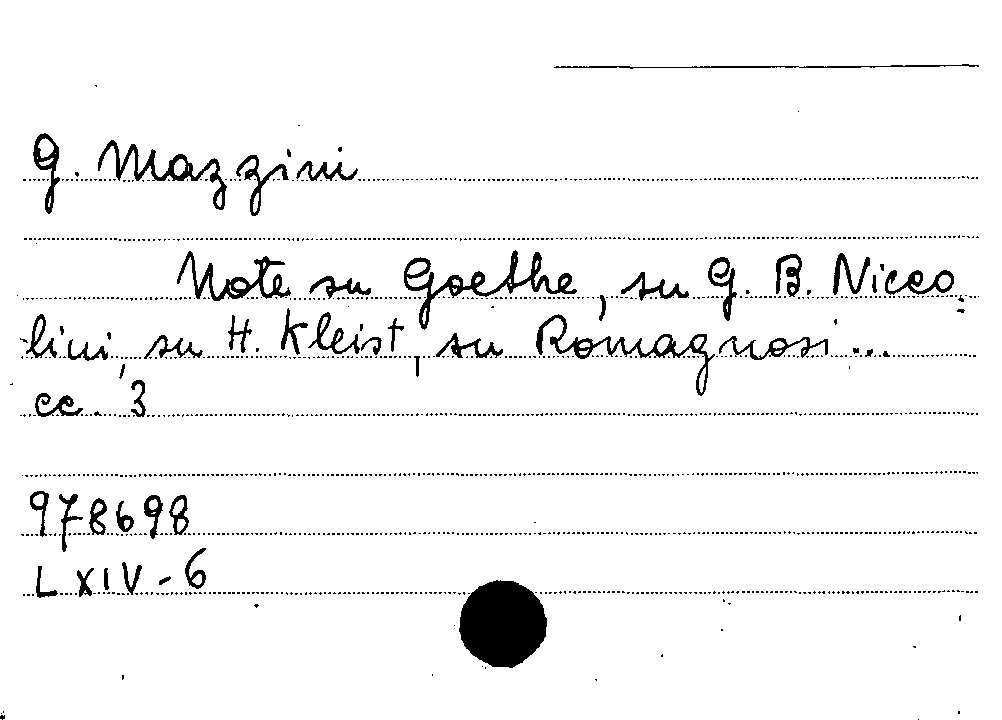 G. Mazzini
Note su Goethe, su G. B. Nicco
lini, su H. Kleist, su Romagnosi...
cc. 3
978698
LXIV-6